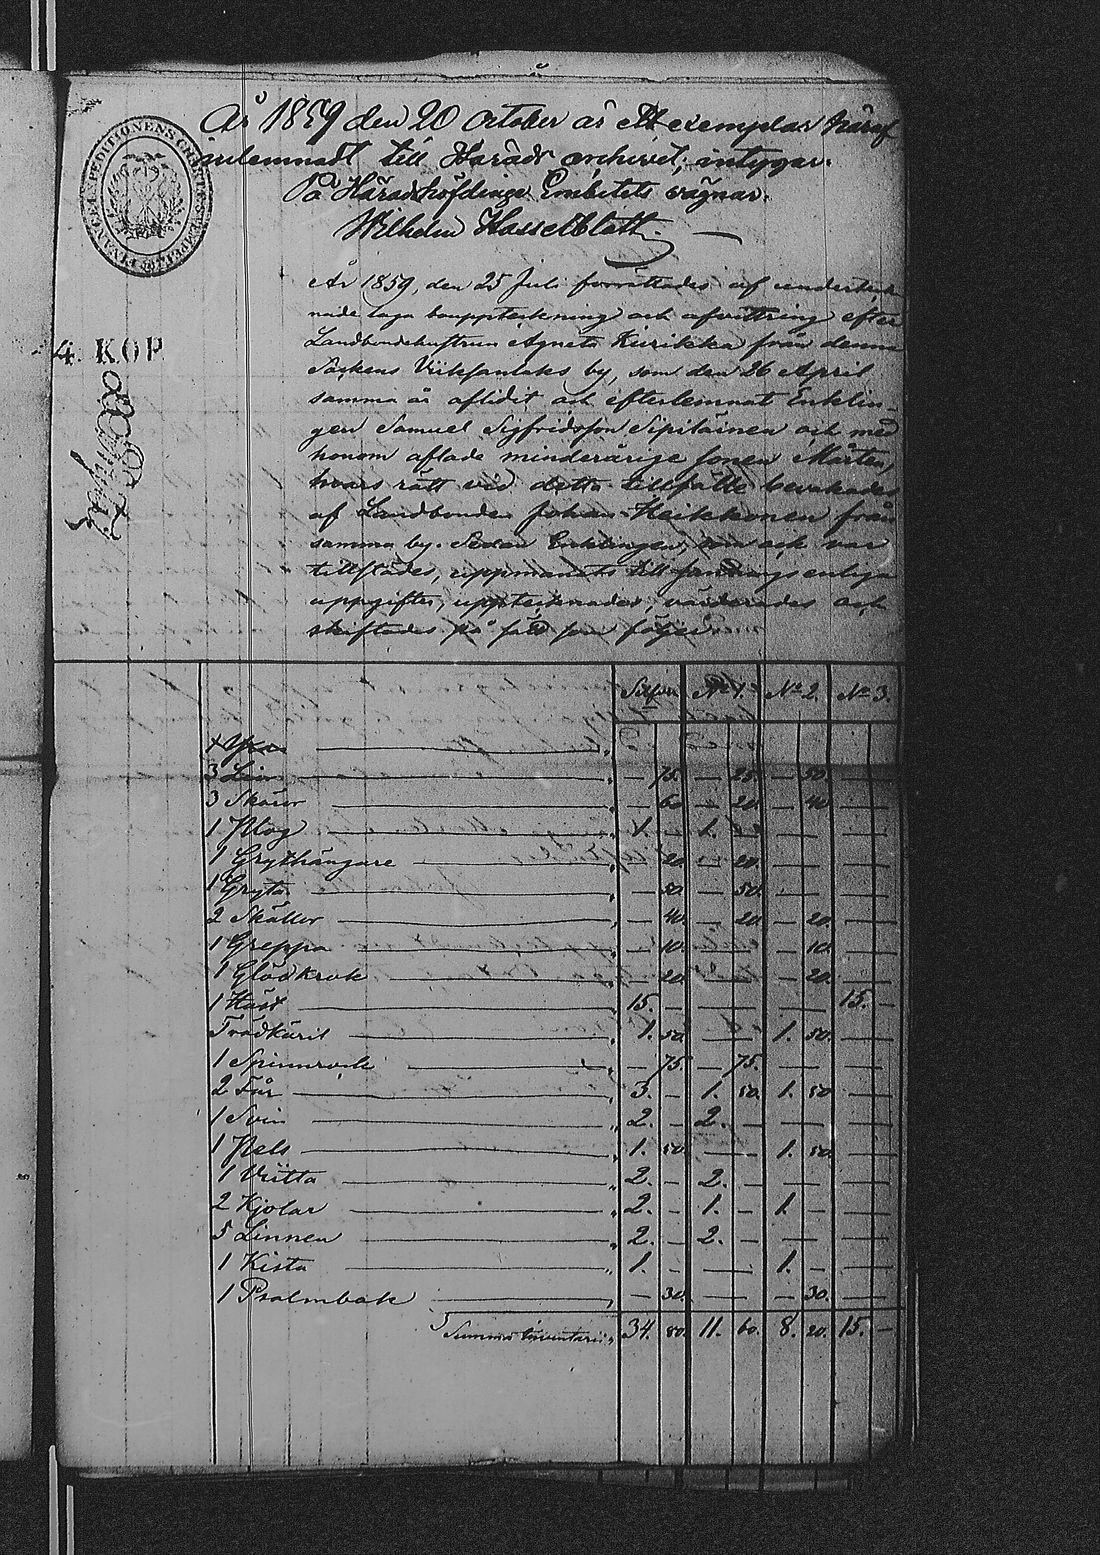 År 1859 den 20 October är ett exemplar häraf
inlemnadt till Härads archivet; intygar.
På Häradshöfdinge Embetets vägnar.
Wilhelm Hasselblatt.
FINANCE EXPEDITIONENS CHARTÆ STEMPEL
4. KOP
År 1859, den 25 Juli förrättades af underteck-
nade laga bouppteckning och afvittring efter
Landbondehustrun Agneta Kiirikka från denna
Sockens by, som den 26 April
samma år aflidit och efterlemnat Enklin-
gen Samuel Sigfridsson Sipiläinen och med
honom aflade minderårige sonen Mårten,
hvars rätt vid detta tillfälle bevakades
af Landbonden Johan Heikkonen från
samma by. Sedan Enklingen, som ock var
tillstädes, uppmanats till sanningsenliga
uppgifter, upptecknades, värderades och
skiftades på sätt som följer:
Silfver N:o 1. N:o 2. N:o 3.
3 Liar — 75. — 25. — 50.
3 Skäror — 60 — 20 — 40 —
1 Plog 1. — 1. — —
1 Grythängare — 20. — 20. — —
1 Gryta — 50 — 50. — —
2 Skällor — 40. — 20 — 20. —
1 Greppa — 10. — — 10. —
1 Glödkrok — 20. — — 20. —
1 Häst 15. — — — 15. —
Trädkäril 1. 50. — 1. 50. —
1 Spinnrock — 75. — 75. — —
2 Får 3. — 1. 50. 1. 50 —
1 Svin 2. — 2. — — —
1 Pels 1. 50. — 1. 50. —
1 Viitta 2. — 2. — — —
2 Kjolar 2. — 1. — 1. — —
5 Linnen 2. — 2. — — —
1 Kista 1. — — 1. — —
1 Psalmbok — 30. — — 30. —
Summa Inventarii 34. 80. 11. 60. 8. 20. 15. —